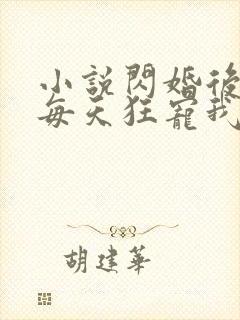 小說閃婚後
每天狂寵我
胡建華